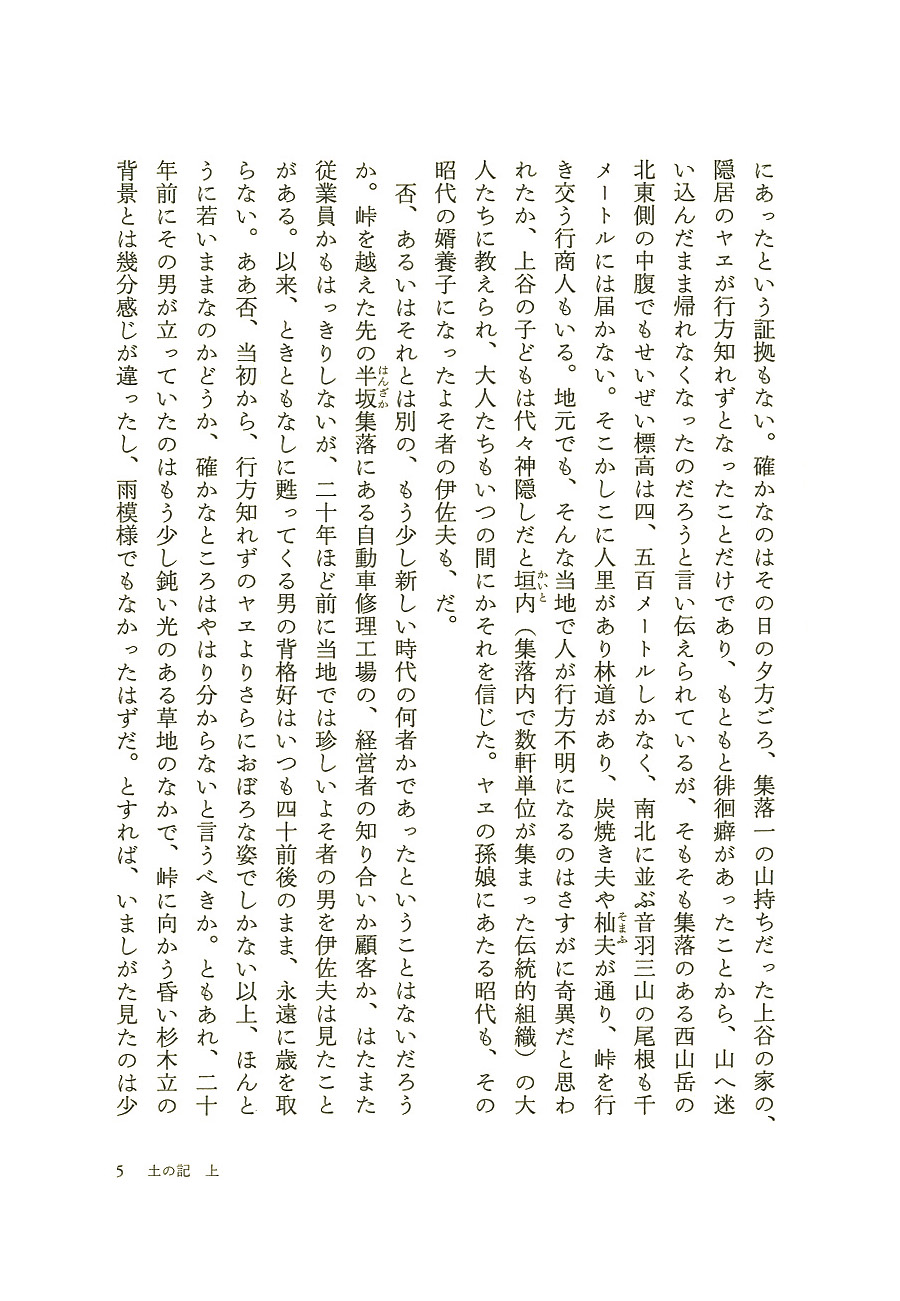 にあったという証拠もない。確かなのはその日の夕方ごろ、集落一の山持ちだった上谷の家の、
隠居のヤヱが行方知れずとなったことだけであり、もともと徘徊癖があったことから、山へ迷
い込んだまま帰れなくなったのだろうと言い伝えられているが、そもそも集落のある西山岳の
北東側の中腹でもせいぜい標高は四、五百メートルしかなく、南北に並ぶ音羽三山の尾根も千
メートルには届かない。そこかしこに人里があり林道があり、炭焼き夫や杣夫が通り、峠を行
そまふ
き交う行商人もいる。地元でも、そんな当地で人が行方不明になるのはさすがに奇異だと思わ
れたか、上谷の子どもは代々神隠しだと垣内（集落内で数軒単位が集まった伝統的組織）の大
かいと
人たちに教えられ、大人たちもいつの間にかそれを信じた。ヤヱの孫娘にあたる昭代も、その
昭代の婿養子になったよそ者の伊佐夫も、だ。
否、あるいはそれとは別の、もう少し新しい時代の何者かであったということはないだろう
か。峠を越えた先の半坂集落にある自動車修理工場の、経営者の知り合いか顧客か、はたまた
はんざか
従業員かもはっきりしないが、二十年ほど前に当地では珍しいよそ者の男を伊佐夫は見たこと
がある。以来、ときともなしに甦ってくる男の背格好はいつも四十前後のまま、永遠に歳を取
らない。ああ否、当初から、行方知れずのヤヱよりさらにおぼろな姿でしかない以上、ほんと
うに若いままなのかどうか、確かなところはやはり分からないと言うべきか。ともあれ、二十
年前にその男が立っていたのはもう少し鈍い光のある草地のなかで、峠に向かう昏い杉木立の
背景とは幾分感じが違ったし、雨模様でもなかったはずだ。とすれば、いましがた見たのは少
5 土の記 上